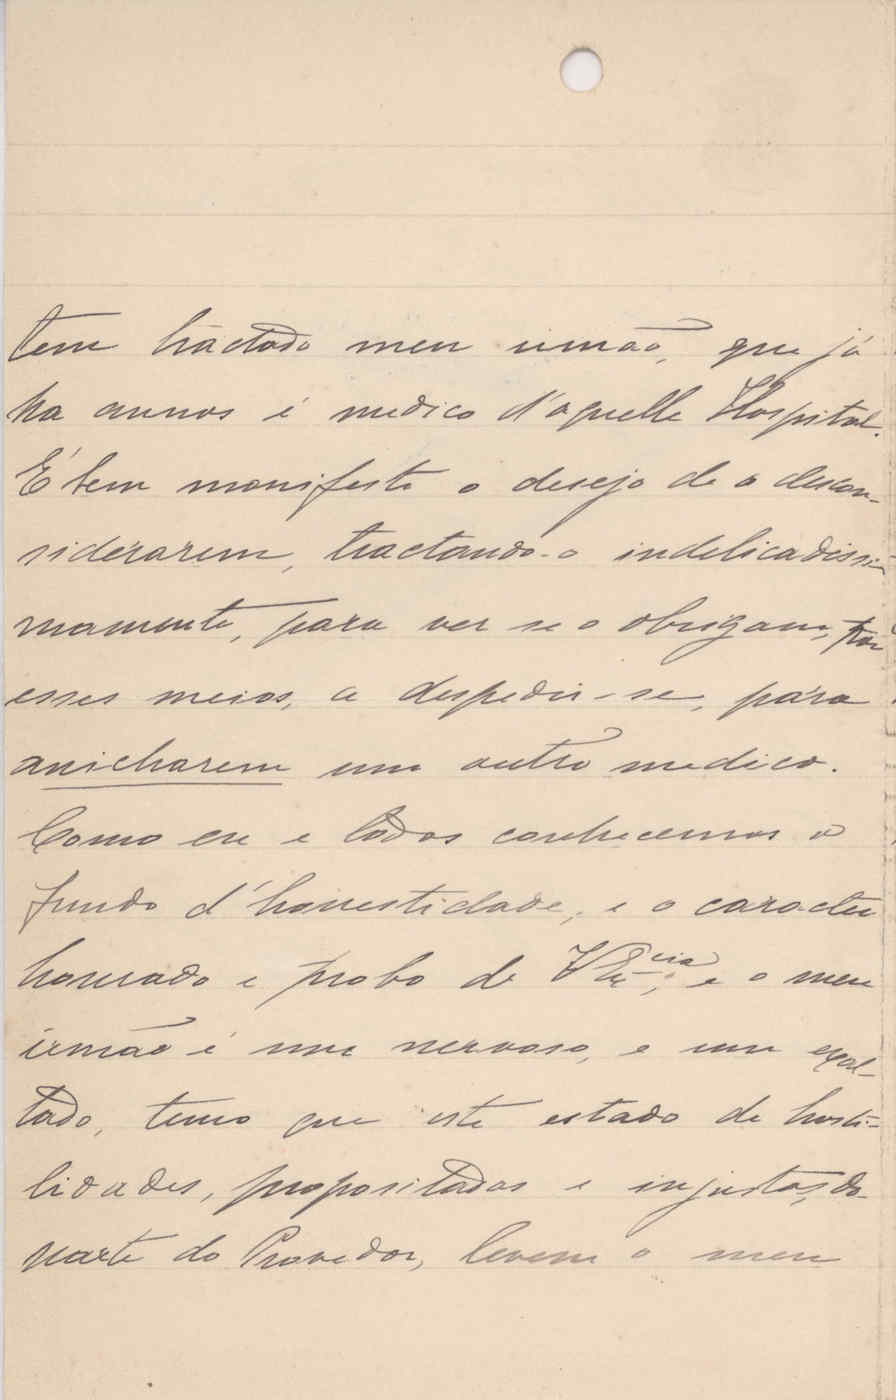 tem tractado meu irmão, que já
ha annos é medico d'aquelle Hospital.
É bem manifesto o desejo de o descon-
siderarem, tractando-o indelicadissi-
mamente, para ver se o obrigam, por
esses meios, a despedir-se, para
anicharem um outro medico.
Como eu e todos conhecemos o
fundo d'honestidade, e o caracter
honrado e probo de V Ex.cia, e o meu
irmão é um nervoso, e um exal-
tado, temo que este estado de hosti-
lidades, propositadas e injustas, da
parte do Provedor, levem o meu